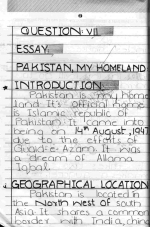 QUESTION: VII
ESSAY
PAKISTAN, MY HOMELAND
INTRODUCTION:
Pakistan is my home
land. It's official name
is Islamic republic of
Pakistan. It came into
being on 14th August, 1947
due to the efforts of
Quaid-e-Azam. It was
a dream of Allama
Iqbal.
GEOGRAPHICAL LOCATION
Pakistan is located in
the North west of south
Asia. It shares a common
border with India, china